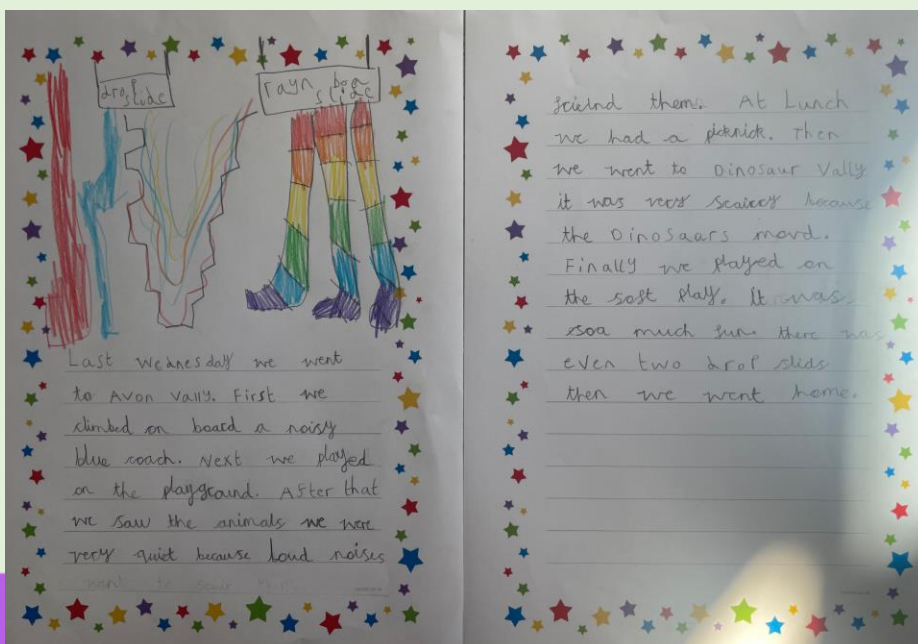 drop
slide
rayn boa
slide
Last Wednesday we went
to Avon Vally. First we
climbed on board a noisy
blue coach. Next we played
on the playground. After that
we saw the animals we were
very quiet because loud noises
to
friend them. At Lunch
we had a picknick. Then
we went to Dinosaur Vally
it was very scairey because
the Dinosaars movd.
Finally we played on
the soft play. It was
soa much fun. there was
even two drop slids
then we went home.